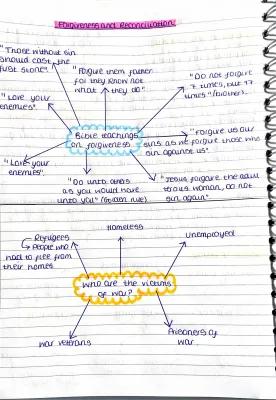 Forgiveness and Reconciliation
"Those without sin
should cast the
first stone".
"Forgive them father
for they know not
what they do".
"Do not forgive
7 times, but 77
times"
"Love your
enemies".
Bible teachings
on forgiveness
"Forgive us our
sins as we forgive those who
sin against us".
"Love your
enemy".
"Do unto others
as you would have
unto you" (Golden rule)
"Jesus forgave the
woman, do not
sin again".
Homeless
Refugees
People who
had to flee from
their homes
Unemployed
Who are the victims
of war?
War veterans
Prisoners of
war.